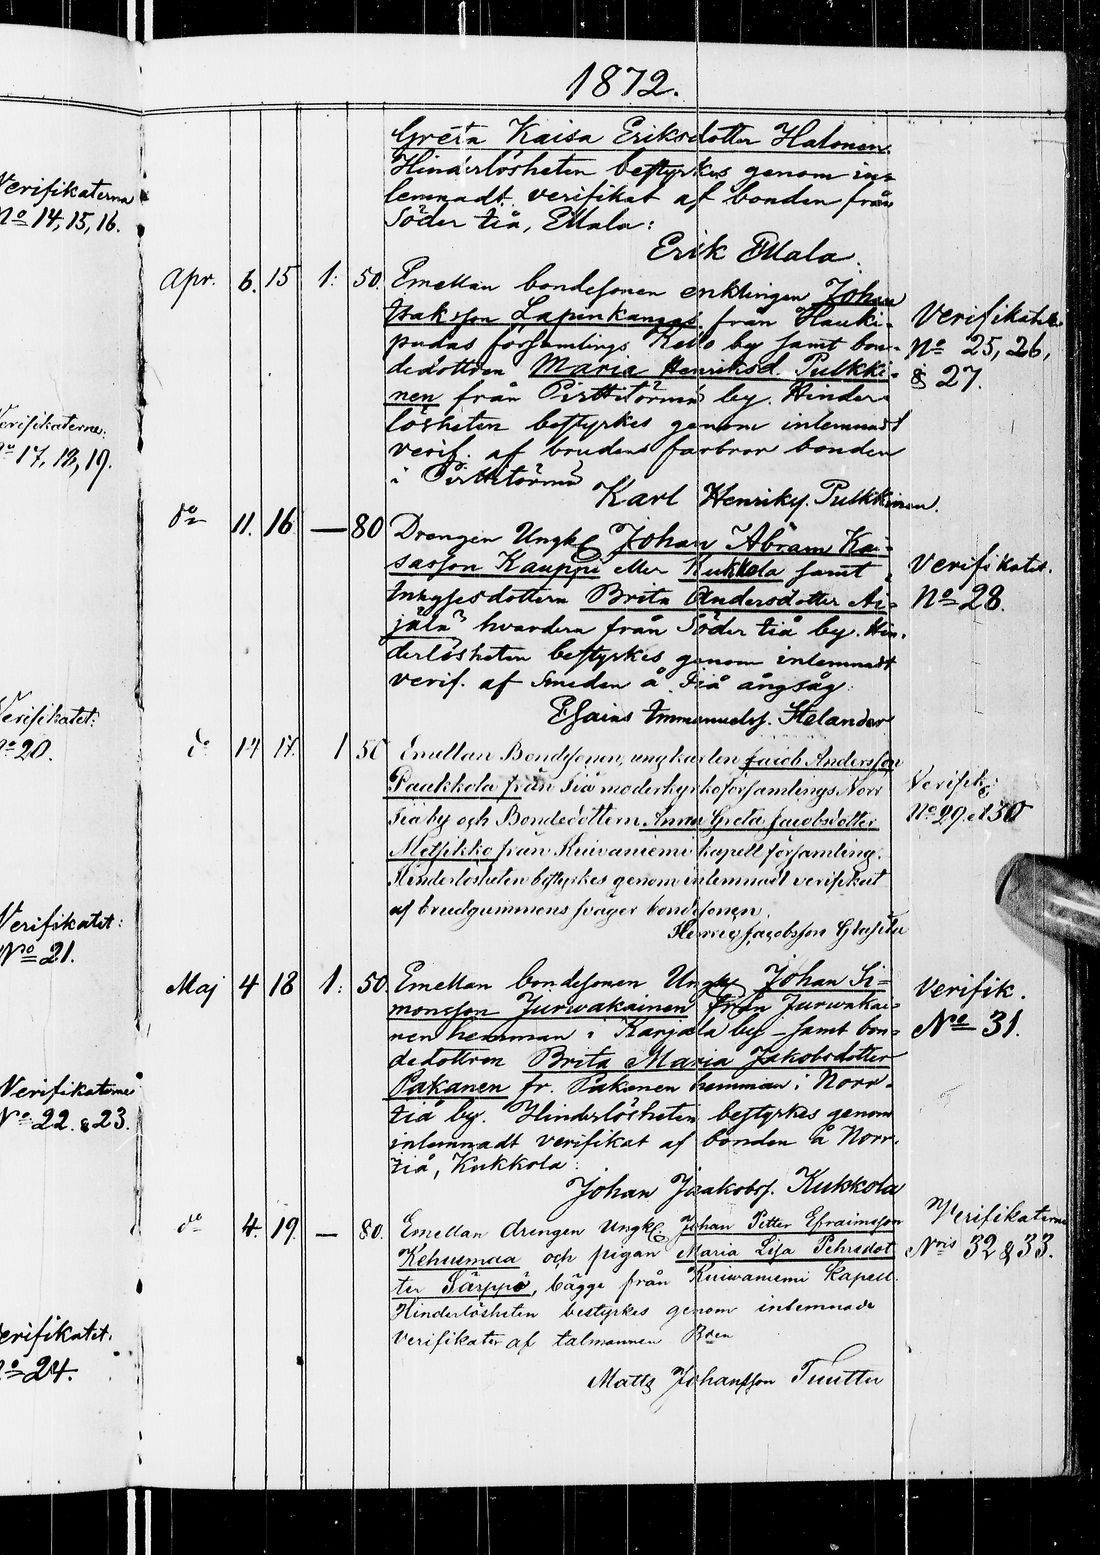 1872.
Verifikaterna
No 14, 15, 16.
Verifikaterne:
No 17, 18, 19.
Verifikatet:
No 20.
Verifikatet:
No 21.
Verifikaterne
No 22. & 23.
Verifikatet:
No 24.
Greta Kaisa Eriksdotter Halonen.
Hinderlösheten bestyrkes genom in-
lemnadt verifikat af bonden från
Söder Iiå, Mala:
Erik Mala.
Apr. 6. 15 1: 50. Emellan bondesonen enklingen Johan
Isaksson Lapinkangas från Hauki-
pudas församlings Kello by samt bon-
dedottren Maria Henriksd. Pulkki-
nen från Pirttitörmä by. Hinder-
lösheten bestyrkes genom inlemnadt
verif. af brudens farbror bonden
i Pirttitörmä
Karl Henriks. Pulkkinen.
Verifikatet
No 25, 26,
& 27.
do 11. 16. — 80 Drengen Ungk. Johan Abram Kai-
sasson Kauppi eller Kukkola samt
Inhysesdottern Brita Andersdotter Äi-
jälä hvardera från Söder Iiå by. Hin-
derlösheten bestyrkes genom inlemnadt
verif. af Smeden å Iiå ångsåg:
Esaias Immanuels. Helander
Verifikatet.
No 28.
do 14 17. 1 50 Emellan Bondesonen, ungkarlen Jacob Andersson
Paakkola från Iiå moderkyrkoförsamlings Norr
Iiå by och Bondedottern Anna Greta Jacobsdotter
Metsikko från Kuivaniemi kapell församling.
Hinderlösheten bestyrkes genom inlemnadt verifikat
af brudgummens svåger bondesonen
Henric Jacobsson
Verifik:
No 29 et 30
Maj 4 18 1: 50. Emellan bondesonen Ungk. Johan Si-
monsson Jurwakainen från Jurwakai-
nen hemman i Karjala by samt bon-
dedottren Brita Maria Jakobsdotter
Pakanen fr. Pakanen hemman i Norr-
Iiå by. Hinderlösheten bestyrkes genom
inlemnadt verifikat af bonden å Norr-
Iiå, Kukkola:
Johan Jaakobs. Kukkola
Verifik.
No 31.
do 4. 19. — 80. Emellan drengen Ungk. Johan Petter Efraimsson
Kehusmaa och pigan Maria Lisa Pehrsdot
ter Särppö, bägge från Kuiwaniemi Kapell.
Hinderlösheten bestyrkes genom inlemnade
Verifikater af talmannen Bden
Matts Johansson Tuutti
Verifikaterna
Nris 32 & 33.